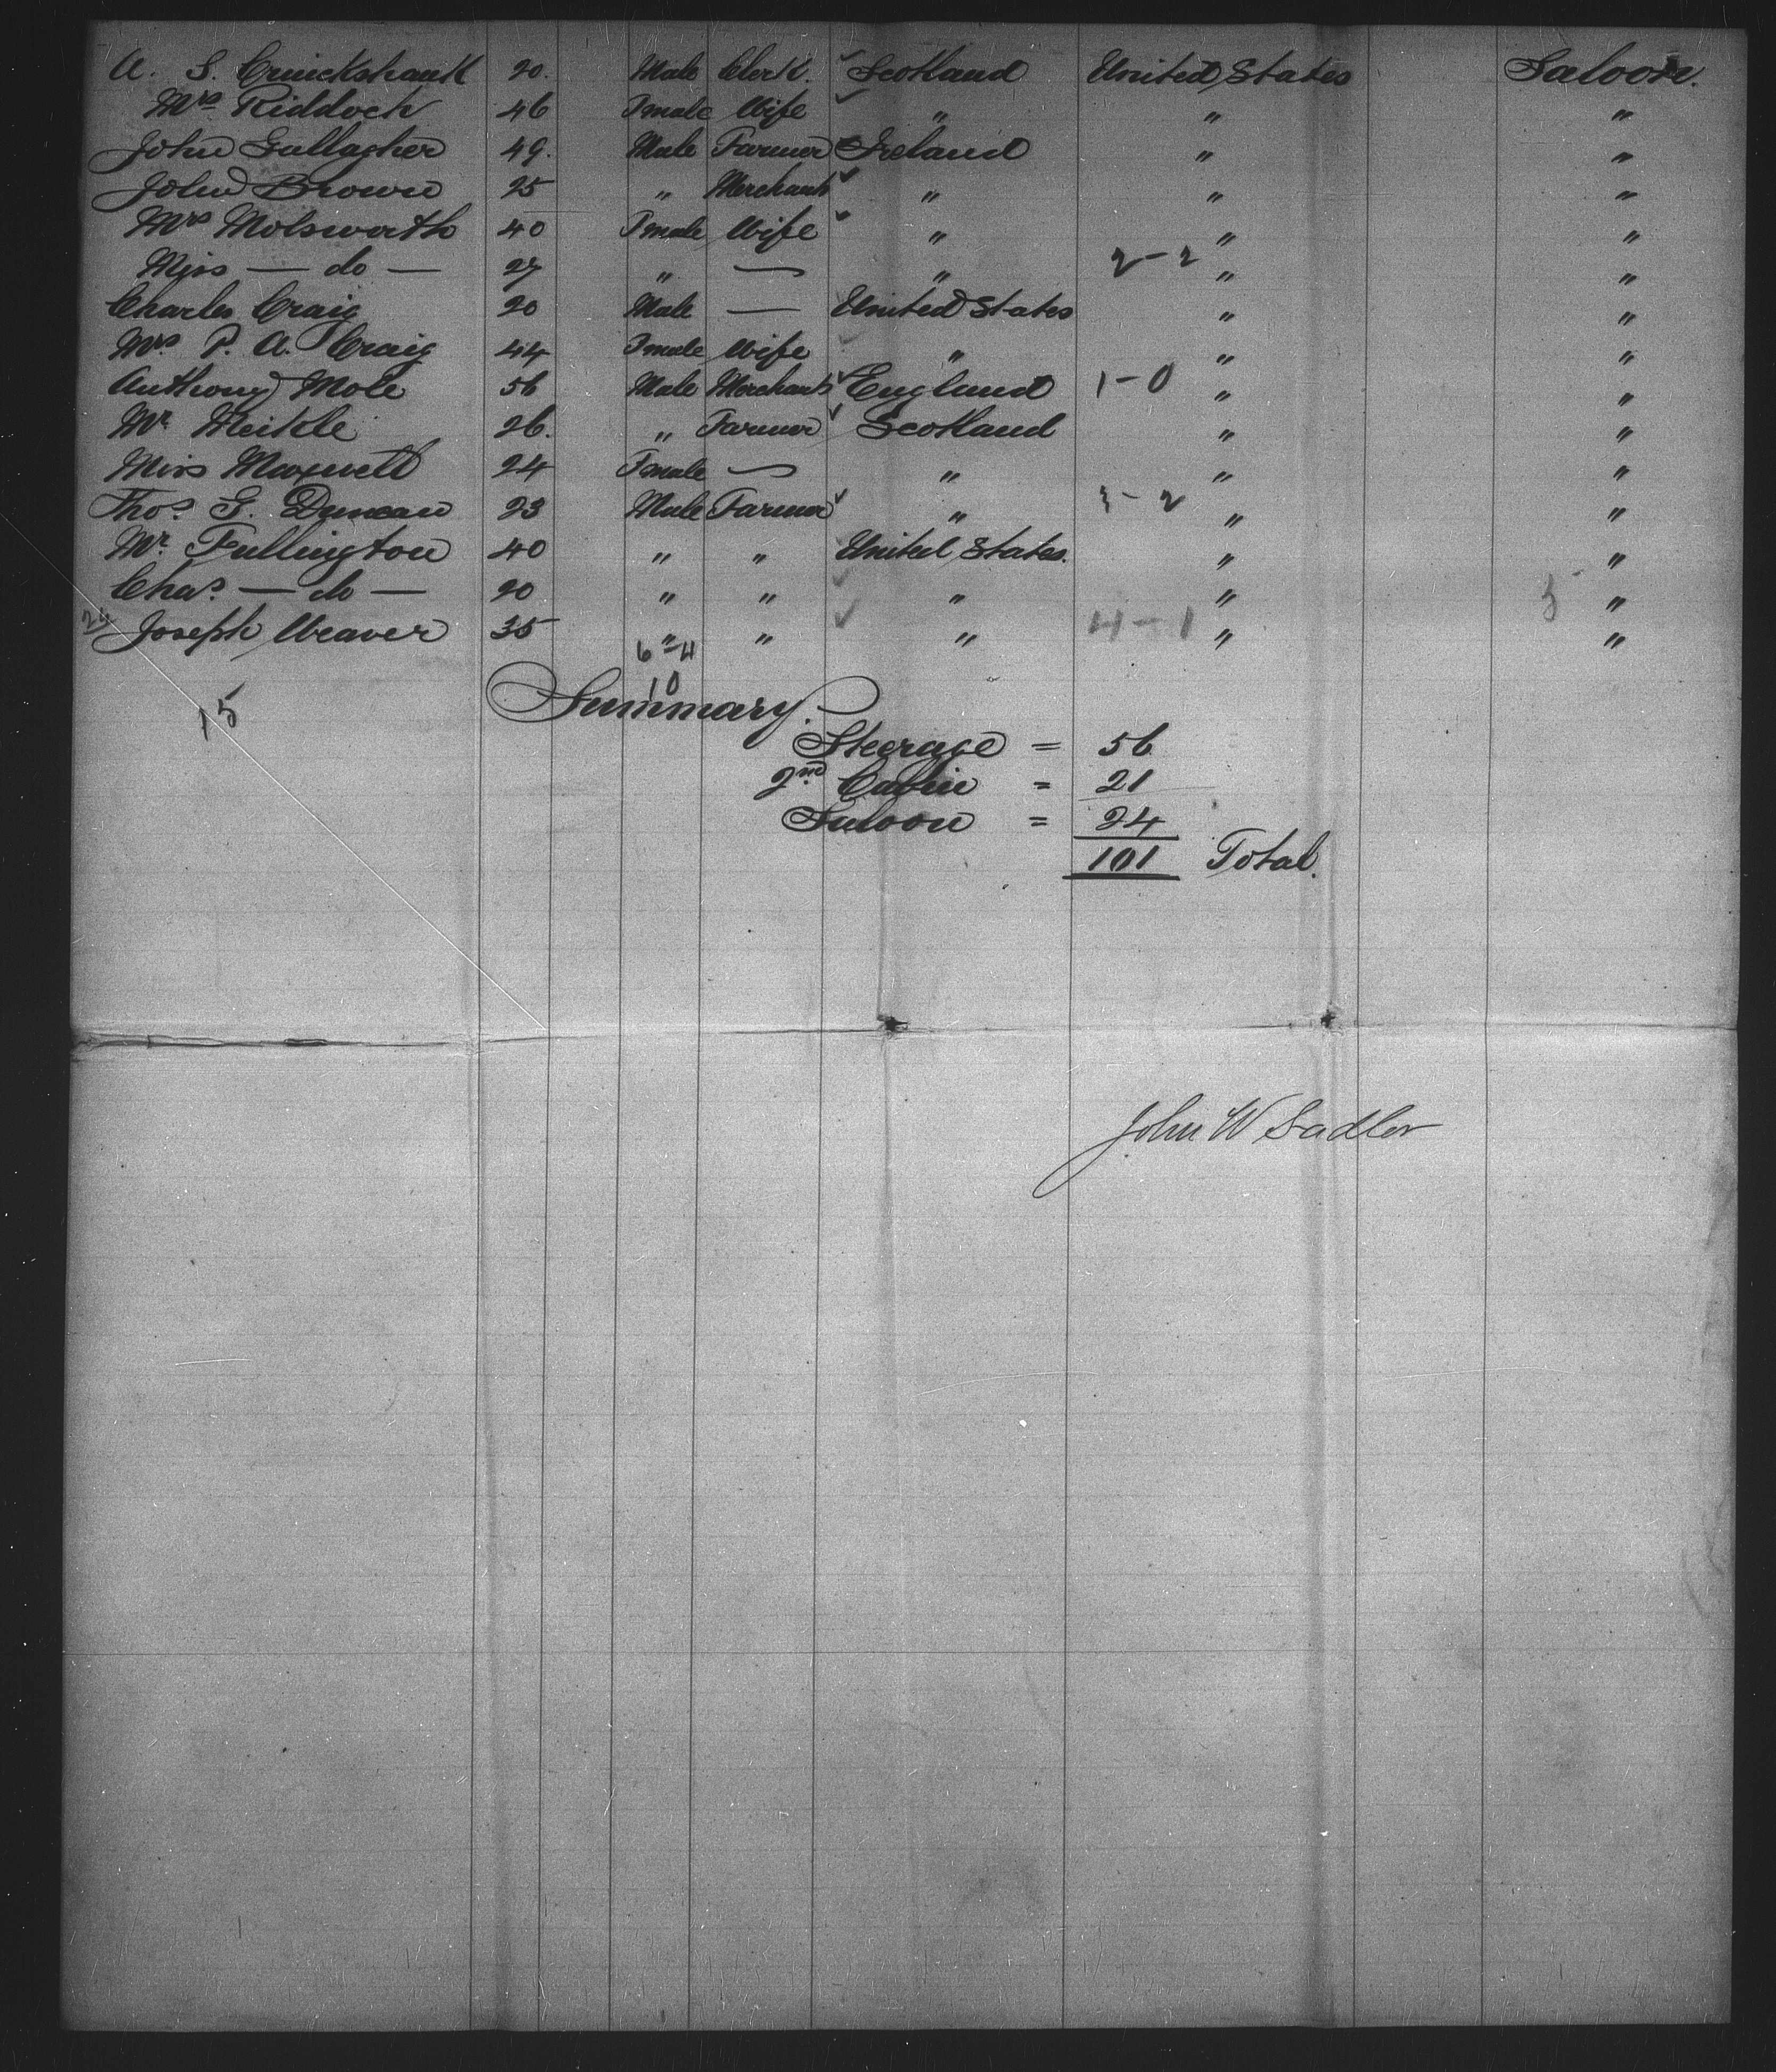 A. S. Cruickshank 20. Male Clerk. ✓ Scotland United States Saloon.
Mrs Riddoch 46 Fmale Wife ✓ " " "
John Gallagher 49. Male Farmer Ireland " "
John Brown 25 " Merchant ✓ " " "
Mrs Molsworth 40 Fmale Wife ✓ " " "
Miss — do — 27 " — " 2-2 " "
Charles Craig 20 Male — United States " "
Mrs P. A. Craig 44 Fmale Wife ✓ " " "
Anthony Mole 56 Male Merchant ✓ England 1-0 " "
Mr. Meikle 26. " Farmer ✓ Scotland " "
Miss Maxwell 24 Fmale — " " "
Thos. G. Duncan 23 Male Farmer ✓ " 3-2 " "
Mr. Fullington 40 " " United States. " "
Chas. — do — 20 " " ✓ " " "
24 Joseph Weaver 35 " " ✓ " 4-1 " "
6-4
10
15
Summary.
Steerage = 56
2nd Cabin = 21
Saloon = 24
101 Total.
John W Sadler